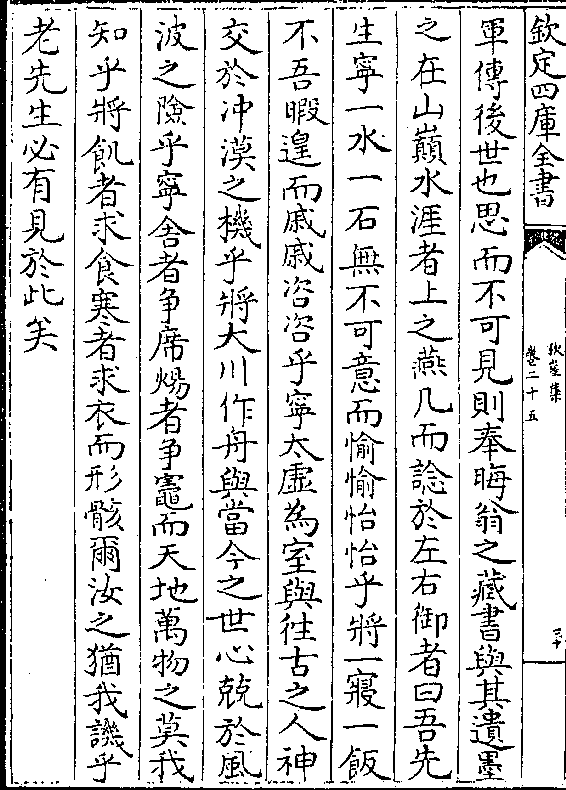 欽定四庫全書
秋崖集
卷二十五
三十
軍傳後世也思而不可見則奉晦翁之藏書與其遺墨
之在山巔水涯者上之燕几而諗於左右御者曰吾先
生寧一水一石無不可意而愉愉怡怡乎將一寢一飯
不吾暇遑而戚戚咨咨乎寧太虛為室與徃古之人神
交於冲漠之機乎將大川作舟與當今之世心兢於風
波之險乎寧舍者争席煬者争竈而天地萬物之莫我
知乎將飢者求食寒者求衣而形骸爾汝之猶我譏乎
老先生必有見於此矣